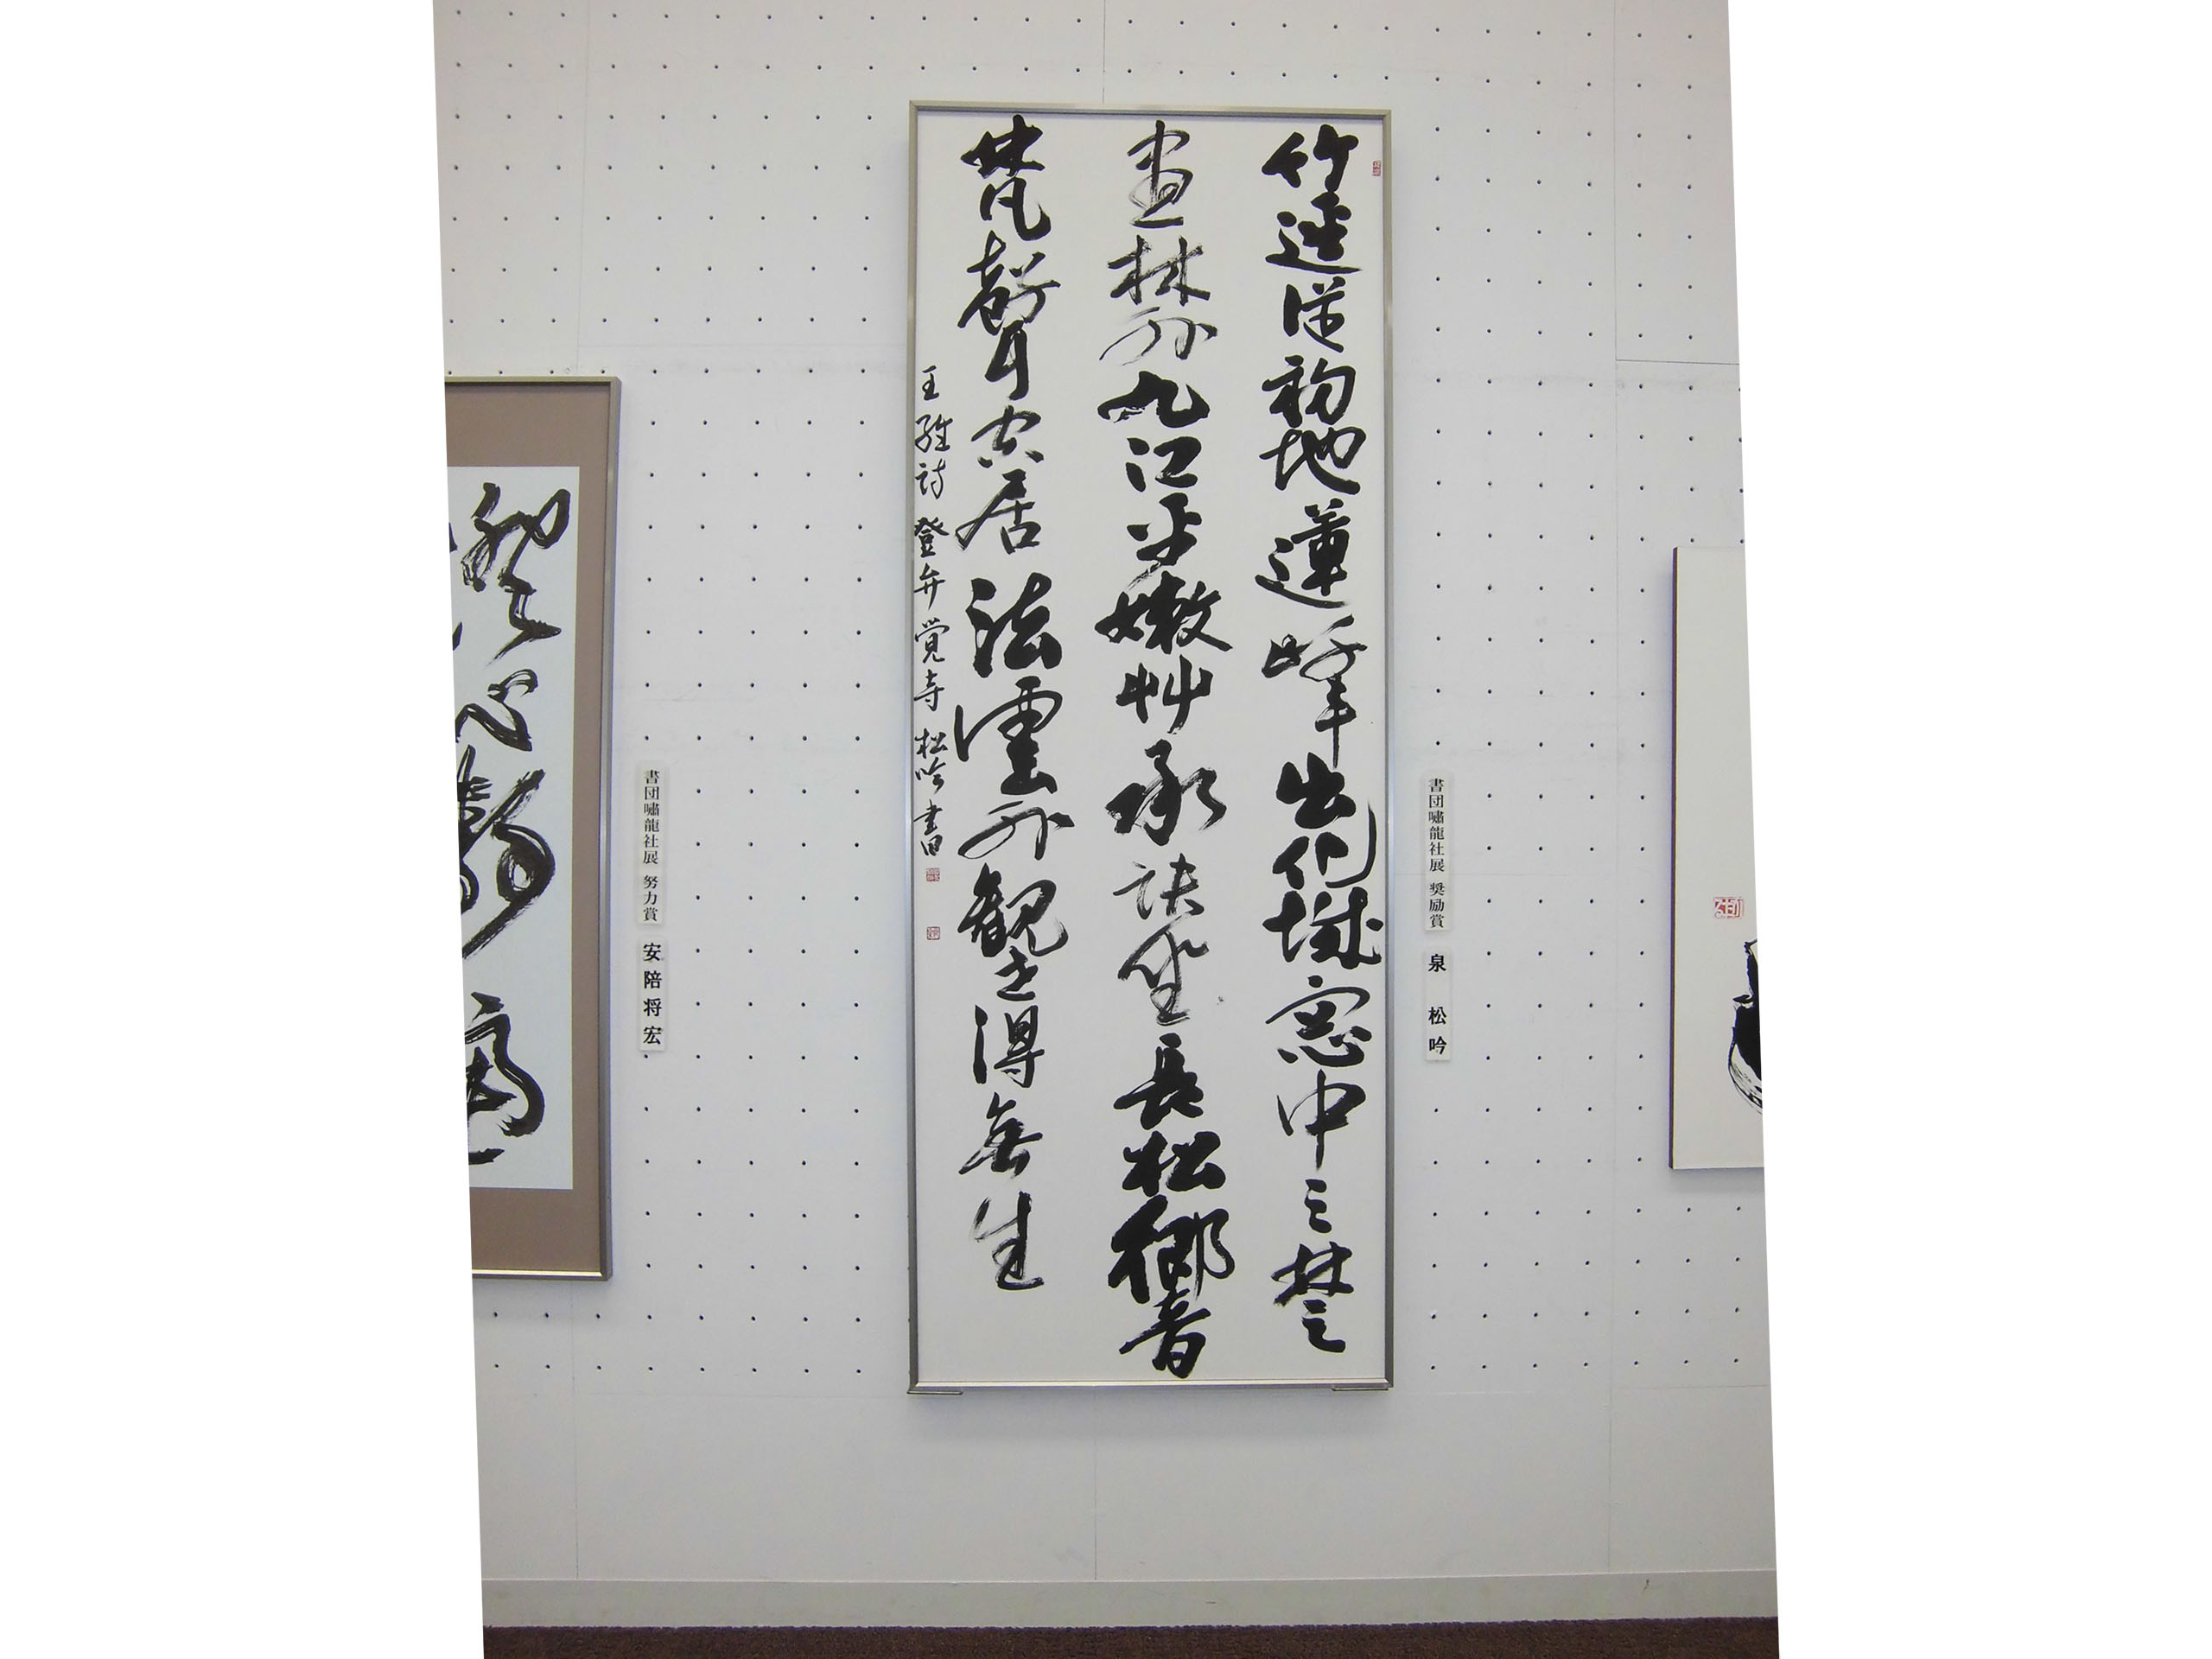 竹逕従初地蓮峯出化城窓中三楚
盡林外九江平嫩艸承趺坐長松響
梵聲空居法雲外観世得無生
王維詩 登弁覚寺 松吟書
書団嘯龍社展 奨励賞 泉 松吟
書団嘯龍社展 努力賞 安陪将宏